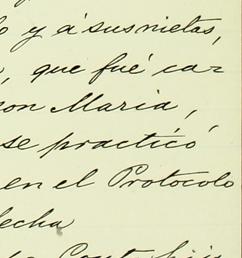 y á sus nietas,
, que fué ca-
con Maria,
se practicó
en el Protocolo
fecha